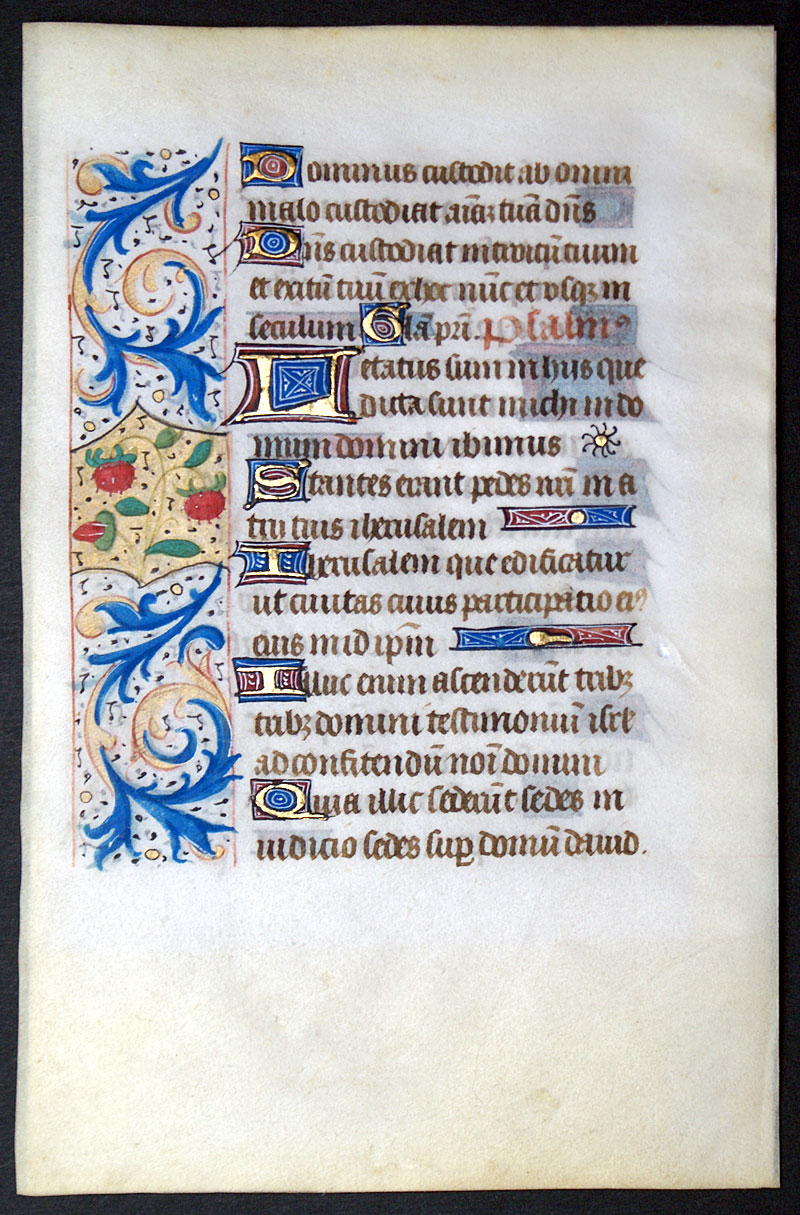 Dominus custodit ab omni
malo custodiat aīaȝ tuā dn̄s
Dn̄s custodiat introitū tuum
et exitū tuū ex hoc nūc et vsqȝ in
seculum Glā pr̄i. Psalmꝰ
Letatus sum in hiis que
dicta sunt michi in do
mum domini ibimus
Stantes erant pedes nr̄i in a
triis tuis iherusalem
Iherusalem que edificatur
ut ciuitas cuius participatio eiꝰ
eius in id ip̄m
Illuc enim ascenderūt tribȝ
tribȝ domini testimoniū isrl̄
ad confitendū noī domini
Quia illic sederūt sedes in
iudicio sedes suꝑ domū dauid.